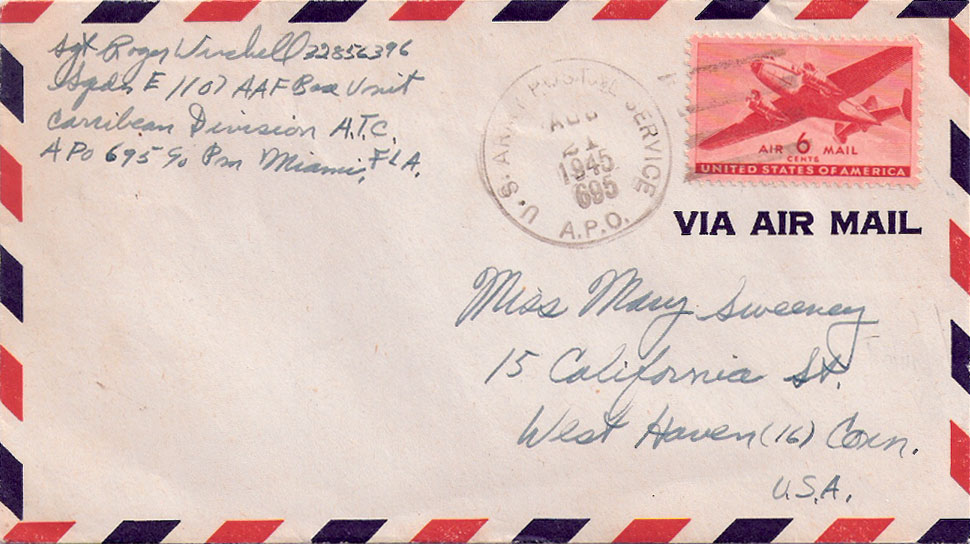 Sgt Roger Winchell 32856396
Sqdn E 1107 AAF Base Unit
Carribean Division A.T.C.
APO 695 % Pm Miami, FLA.
U.S. ARMY POSTAL SERVICE
AUG
21
1945
695
A.P.O.
AIR 6 MAIL
CENTS
UNITED STATES OF AMERICA
VIA AIR MAIL
Miss Mary Sweeney
15 California St.
West Haven (16) Conn.
U.S.A.